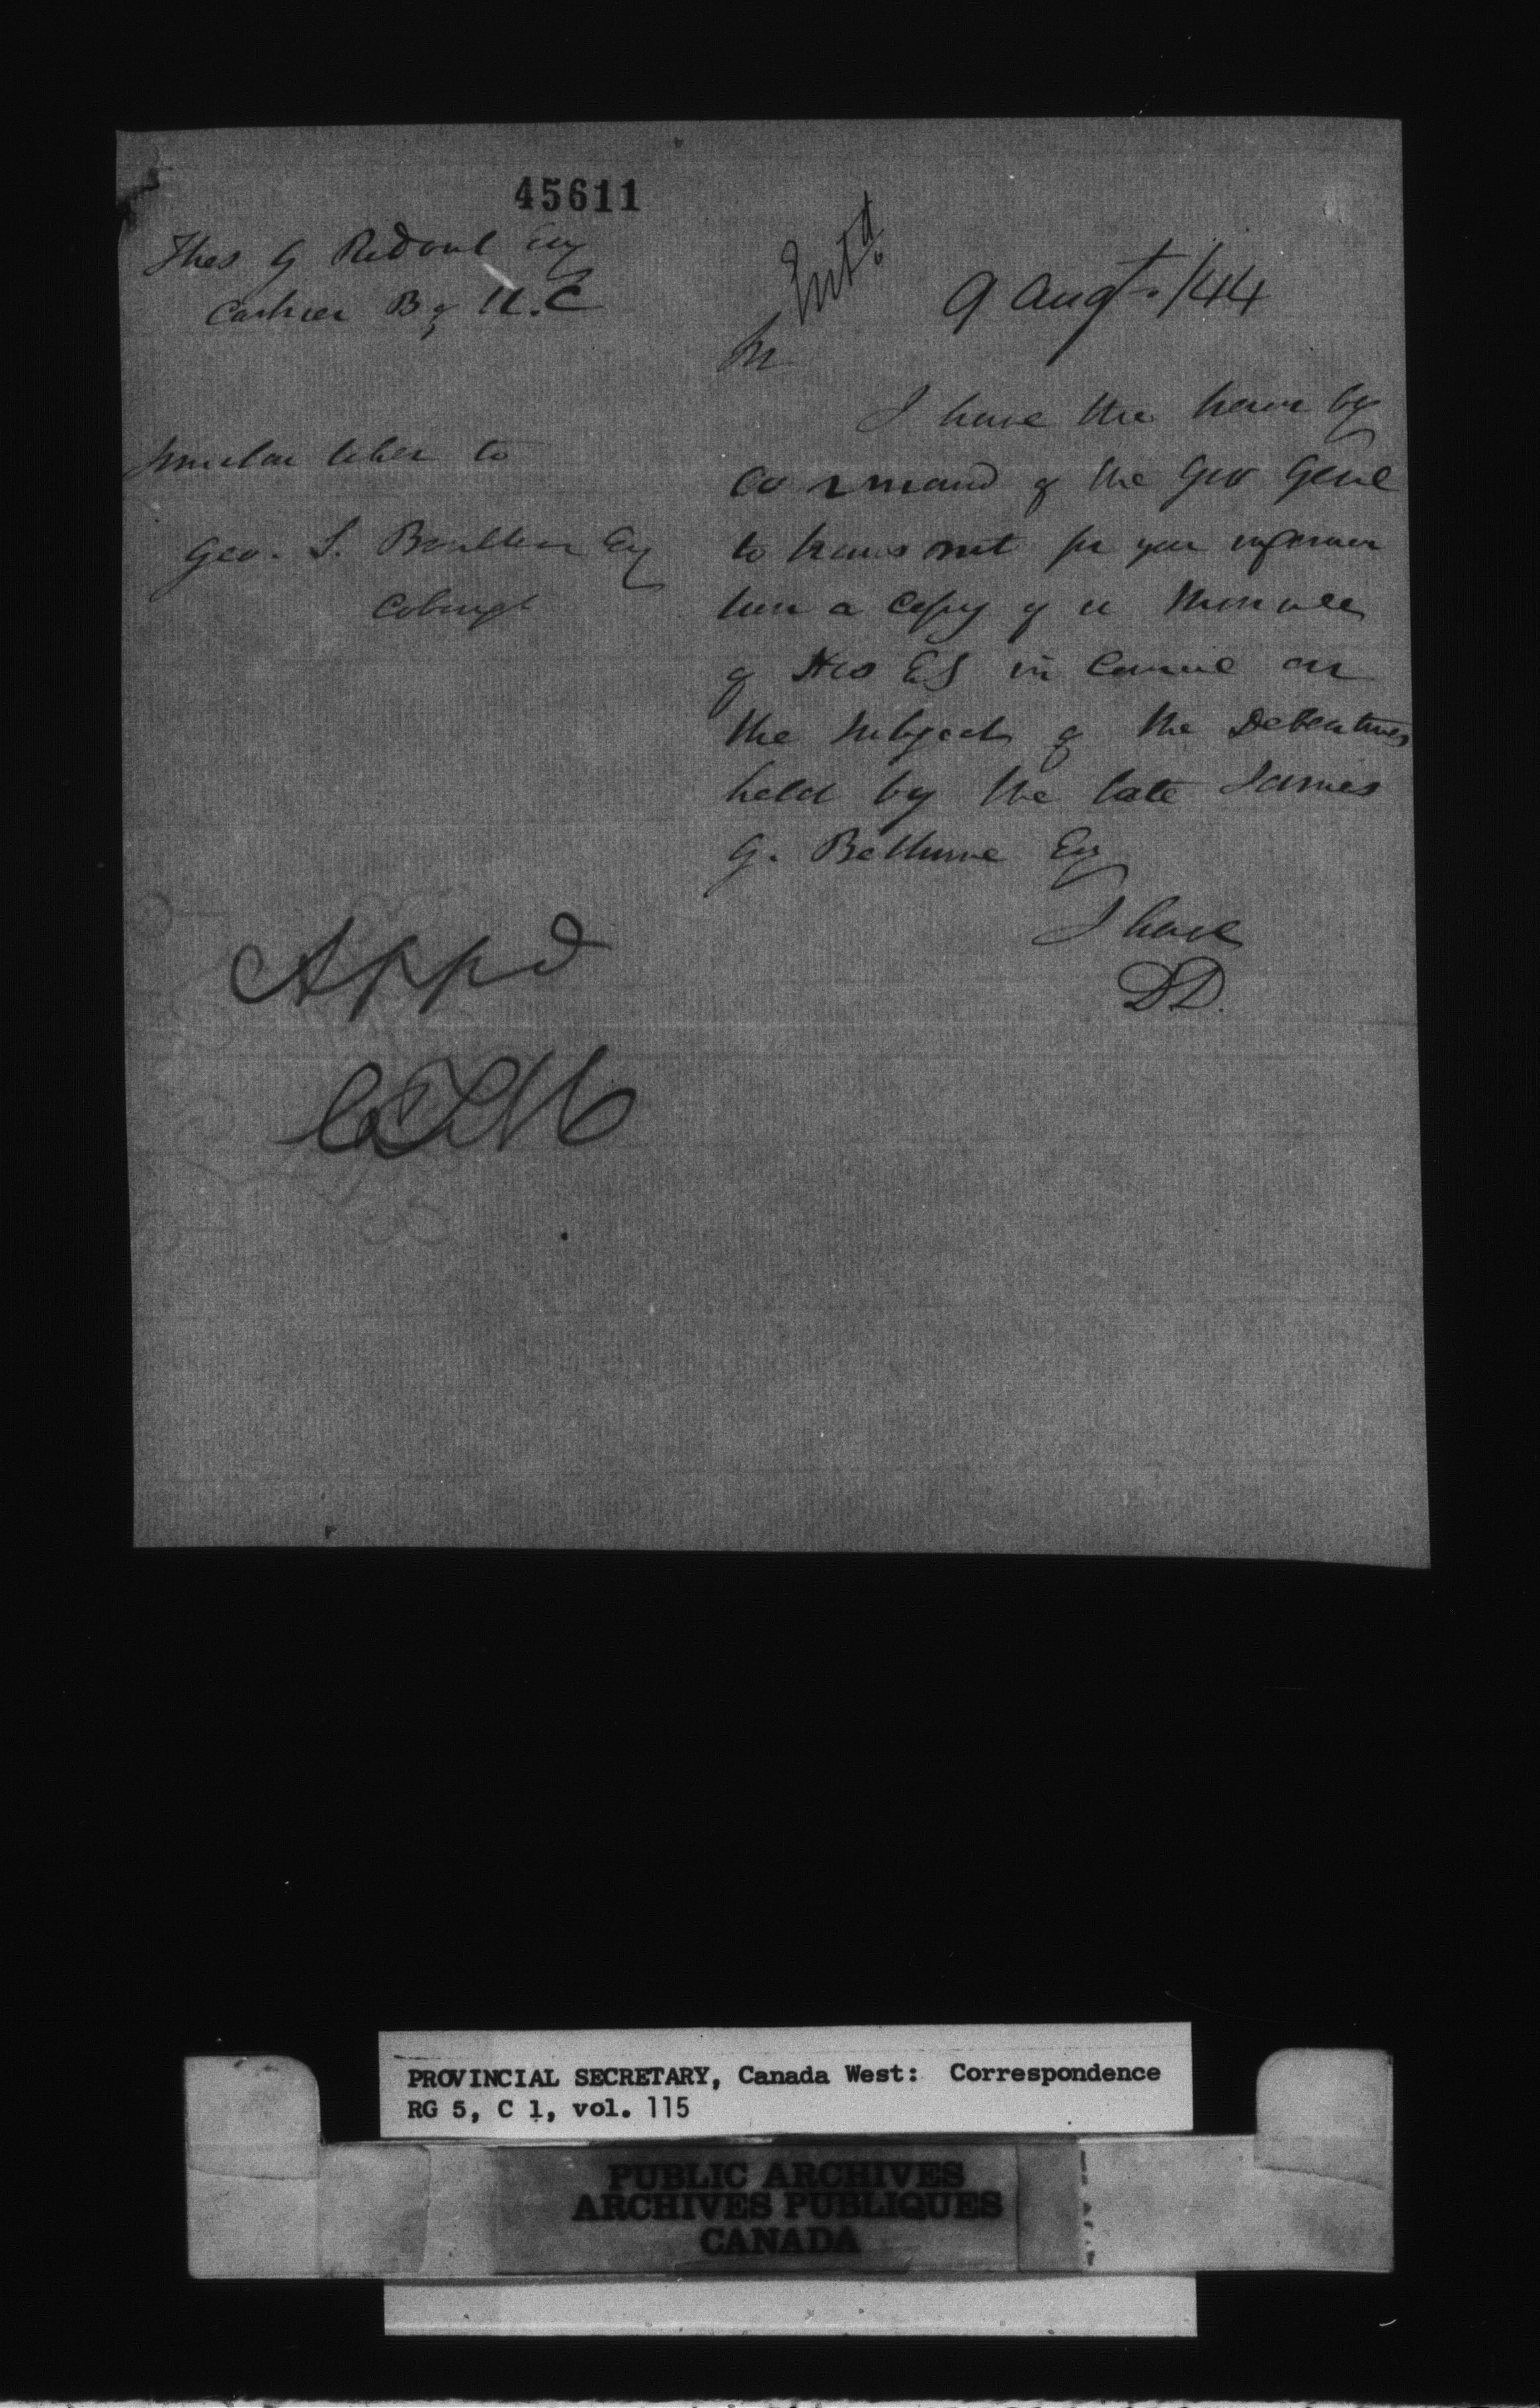 45611
Thos G Ridout Esq
Cashier B of U.C
Similar letter to
Geo. S. Boulton Esq
Cobourg
Appd
Entd
9 Augt. /44
Sir
I have the honor by
command of the Gov Genl
to transmit for your informa
tion a Copy of a Minute
of His Ex in Council on
the subject of the Debentures
held by the late James
G. Bethune Esq
I have
DD.
PROVINCIAL SECRETARY, Canada West: Correspondence
RG 5, C 1, vol. 115
PUBLIC ARCHIVES
ARCHIVES PUBLIQUES
CANADA